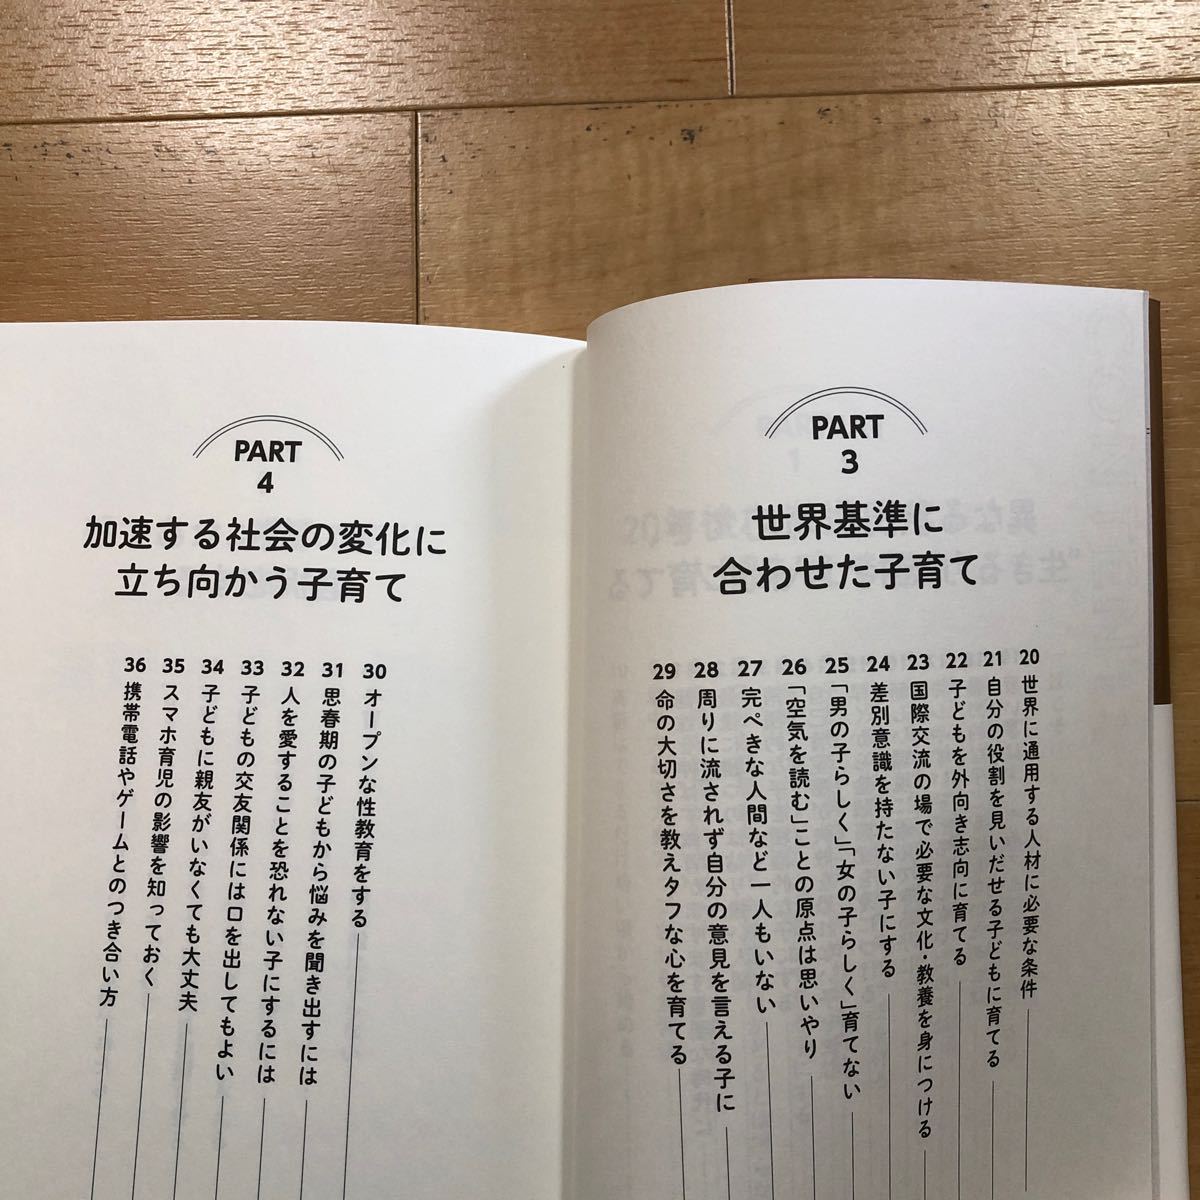 PART
3
世界基準に
合わせた子育て
20 世界に通用する人材に必要な条件
21 自分の役割を見いだせる子どもに育てる
22 子どもを外向き志向に育てる
23 国際交流の場で必要な文化・教養を身につける
24 差別意識を持たない子にする
25 「男の子らしく」「女の子らしく」育てない
26 「空気を読む」ことの原点は思いやり
27 完ぺきな人間など一人もいない
28 周りに流されず自分の意見を言える子に
29 命の大切さを教えタフな心を育てる
PART
4
加速する社会の変化に
立ち向かう子育て
30 オープンな性教育をする
31 思春期の子どもから悩みを聞き出すには
32 人を愛することを恐れない子にするには
33 子どもの交友関係には口を出してもよい
34 子どもに親友がいなくても大丈夫
35 スマホ育児の影響を知っておく
36 携帯電話やゲームとのつき合い方